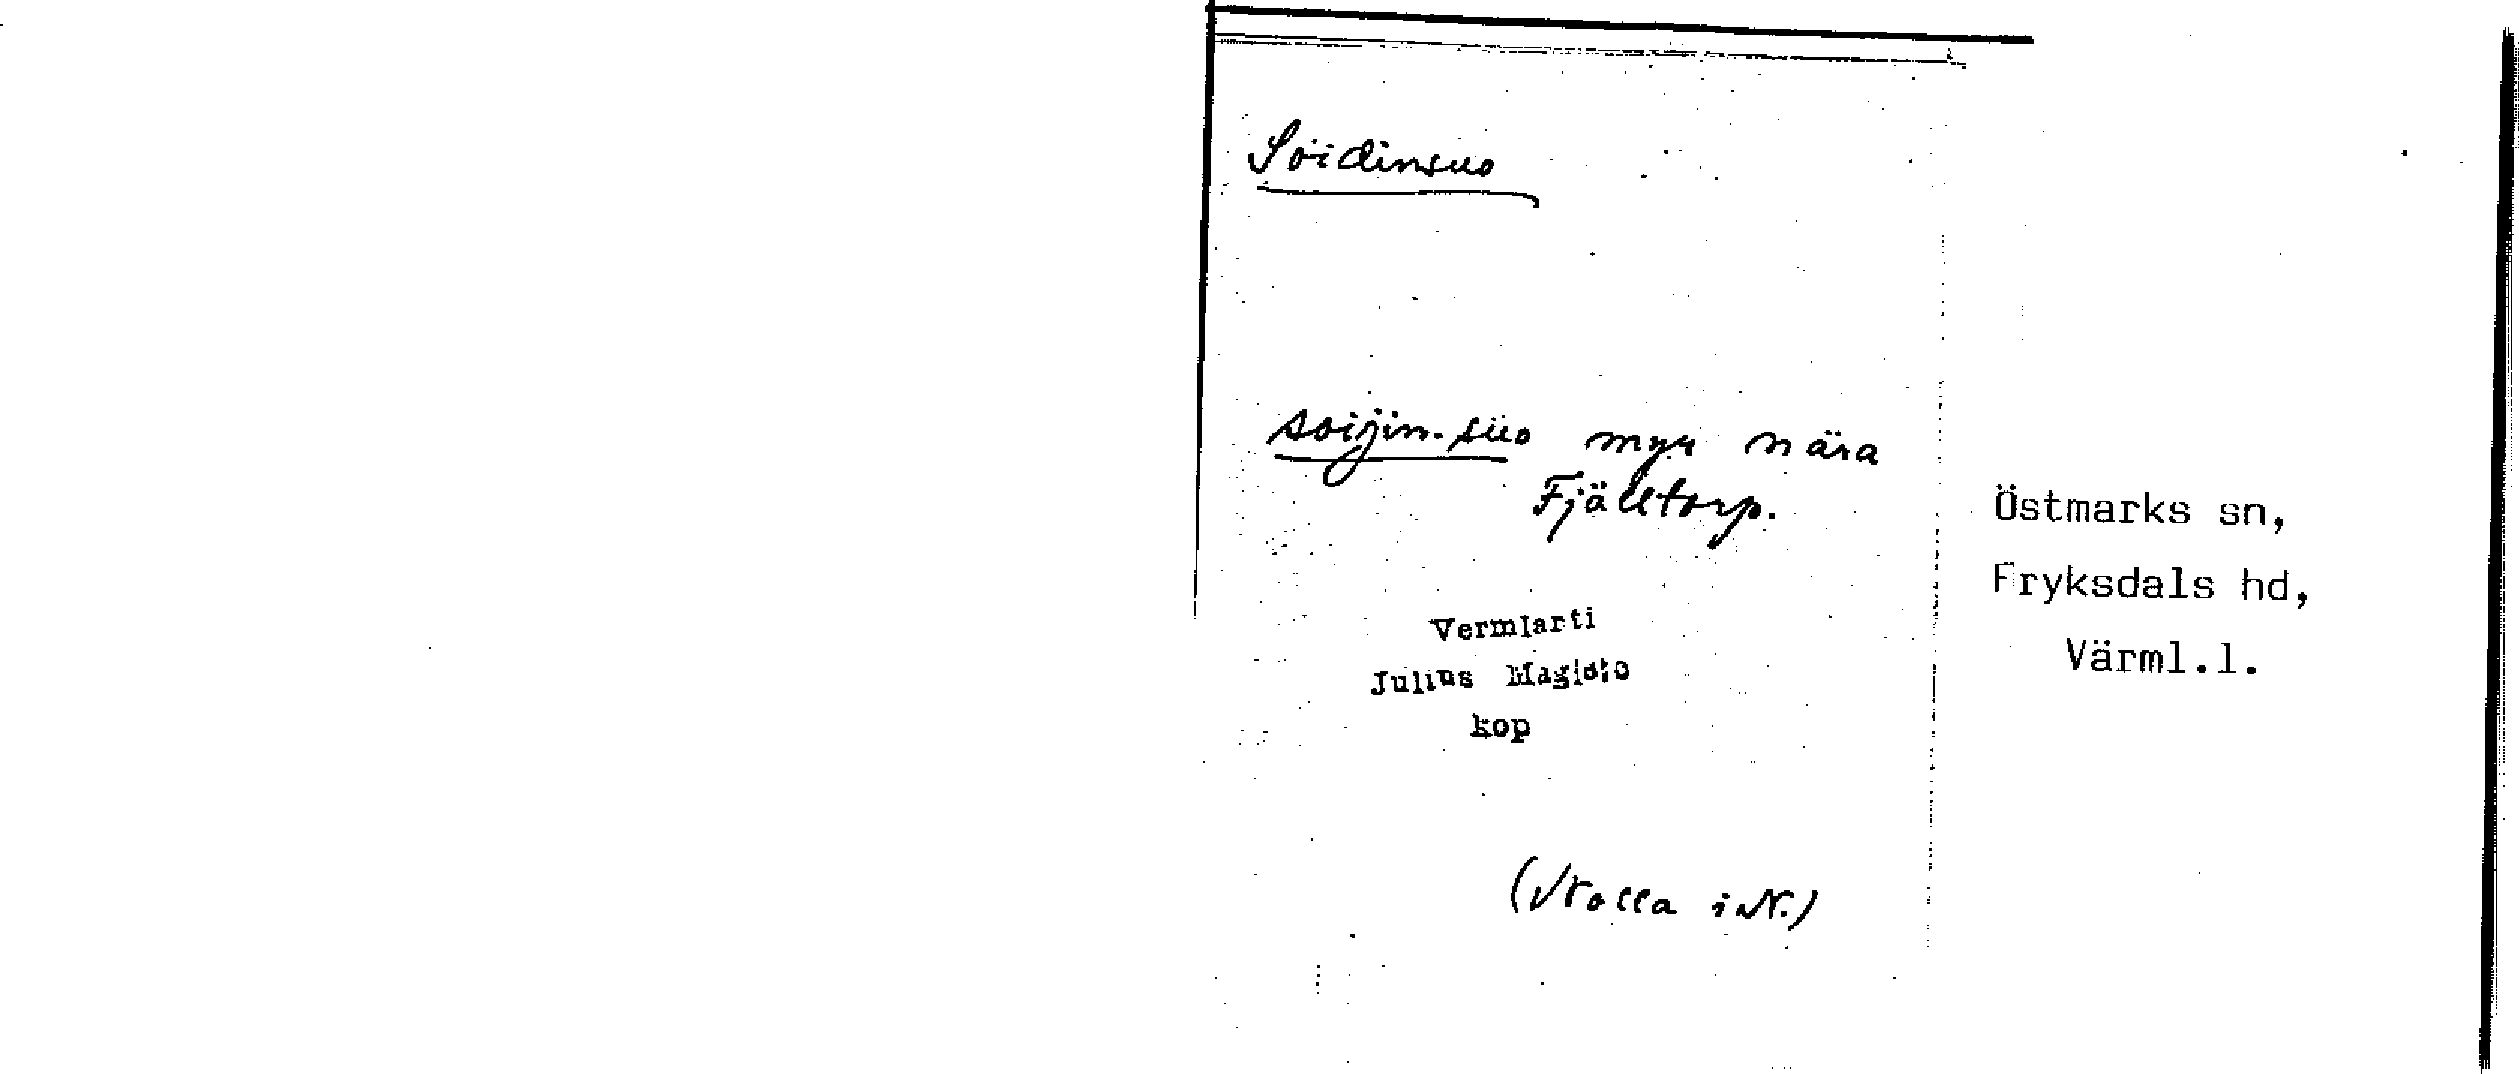 Soidinsuo
soijin-suo myr nära
Fjälltorp.
Östmarks sn,
Fryksdals hd,
Värml.l.
Vermlanti
Julius Mägiste
kop
(Nolla i N.)